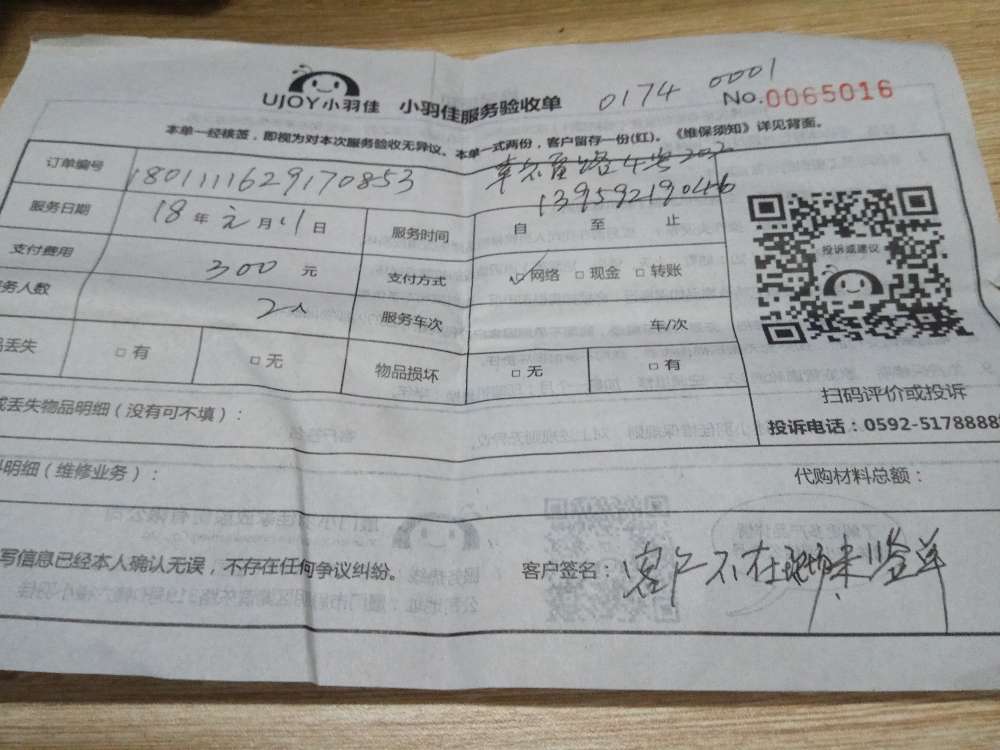 UJOY小羽佳 小羽佳服务验收单 0174 0001 No.0065016
本单一经核签，即视为对本次服务验收无异议。本单一式两份，客户留存一份(红)。《维保须知》详见背面。
订单编号 1801111629170853 路4号202
13959219046
服务日期 18年元月11日 服务时间 自 至 止
支付费用 300元 支付方式 ☑网络 □现金 □转账
务人数 2人 服务车次 车/次
丢失 □有 □无 物品损坏 □无 □有
投诉或建议
扫码评价或投诉
投诉电话：0592-5178888
或丢失物品明细（没有可不填）：
料明细（维修业务）： 代购材料总额：
写信息已经本人确认无误，不存在任何争议纠纷。 客户签名：客户不在现场未签单